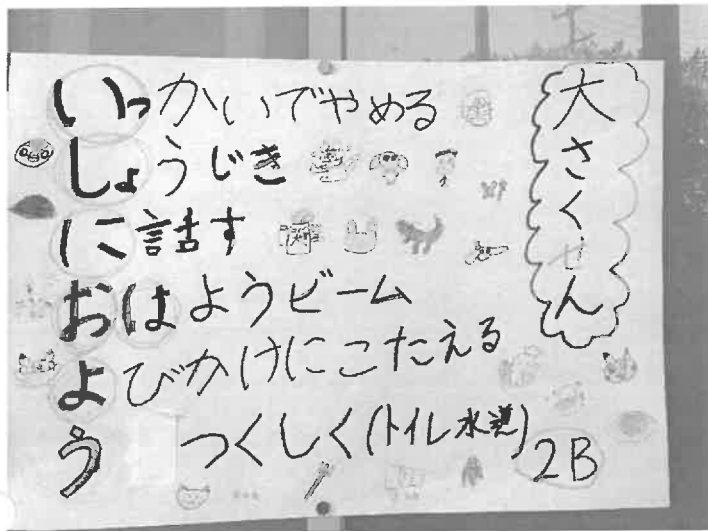 大さくせん
いっかいでやめる
しょうじき
に話す
おはようビーム
よびかけにこたえる
うつくしく(トイレ水道)
2B